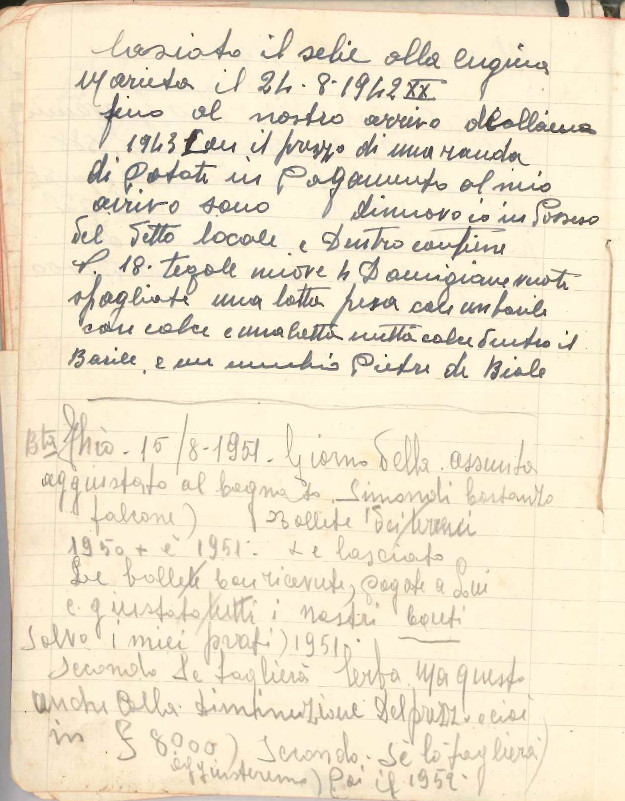 lasciato il selie alla cugina
Marieta il 24-8-1942 XX
fino al nostro arrivo
1943 Con il prezzo di una randa
di Patate in Pagamento al mio
arrivo sono dinnovo io in Posseso
del detto locale e Dentro
18. tegole nuove 4 Damigiane vuote
spagliate una lotta pesa con un barile
con calce e una
Barile, e un muchio Pietre di Biole
Bta Ghio - 15/8-1951. Giorno della assunta
aggiustato al bagnato. Simondi Costanzo
falcone) Bollete dei
1950 + è 1951. + e lasciato
Le bollete con ricevute, pagate a Lui
e giustato tutti i nostri Conti
Salvo i miei prati) 1951.
Secondo Se taglierà lerba. Ma questo
anche Colla diminuzione Del prezzo e cioi
in £ 8000) Secondo. Sè lo taglierà)
aggiusteremo) Poi il 1952.